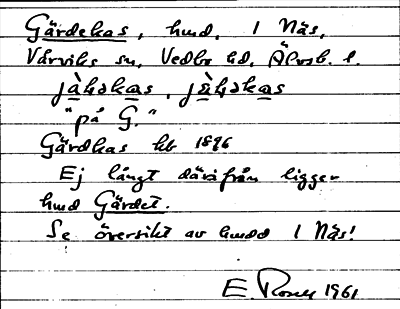 Gärdekas, hmd, 1 Näs,
Vårviks sn, Vedbo hd, Älvsb. l.
"på G."
Gärdkas hb 1896
Ej långt därifrån ligger
hmd Gärdet.
Se översikt av hmdd 1 Näs!
E. 1961